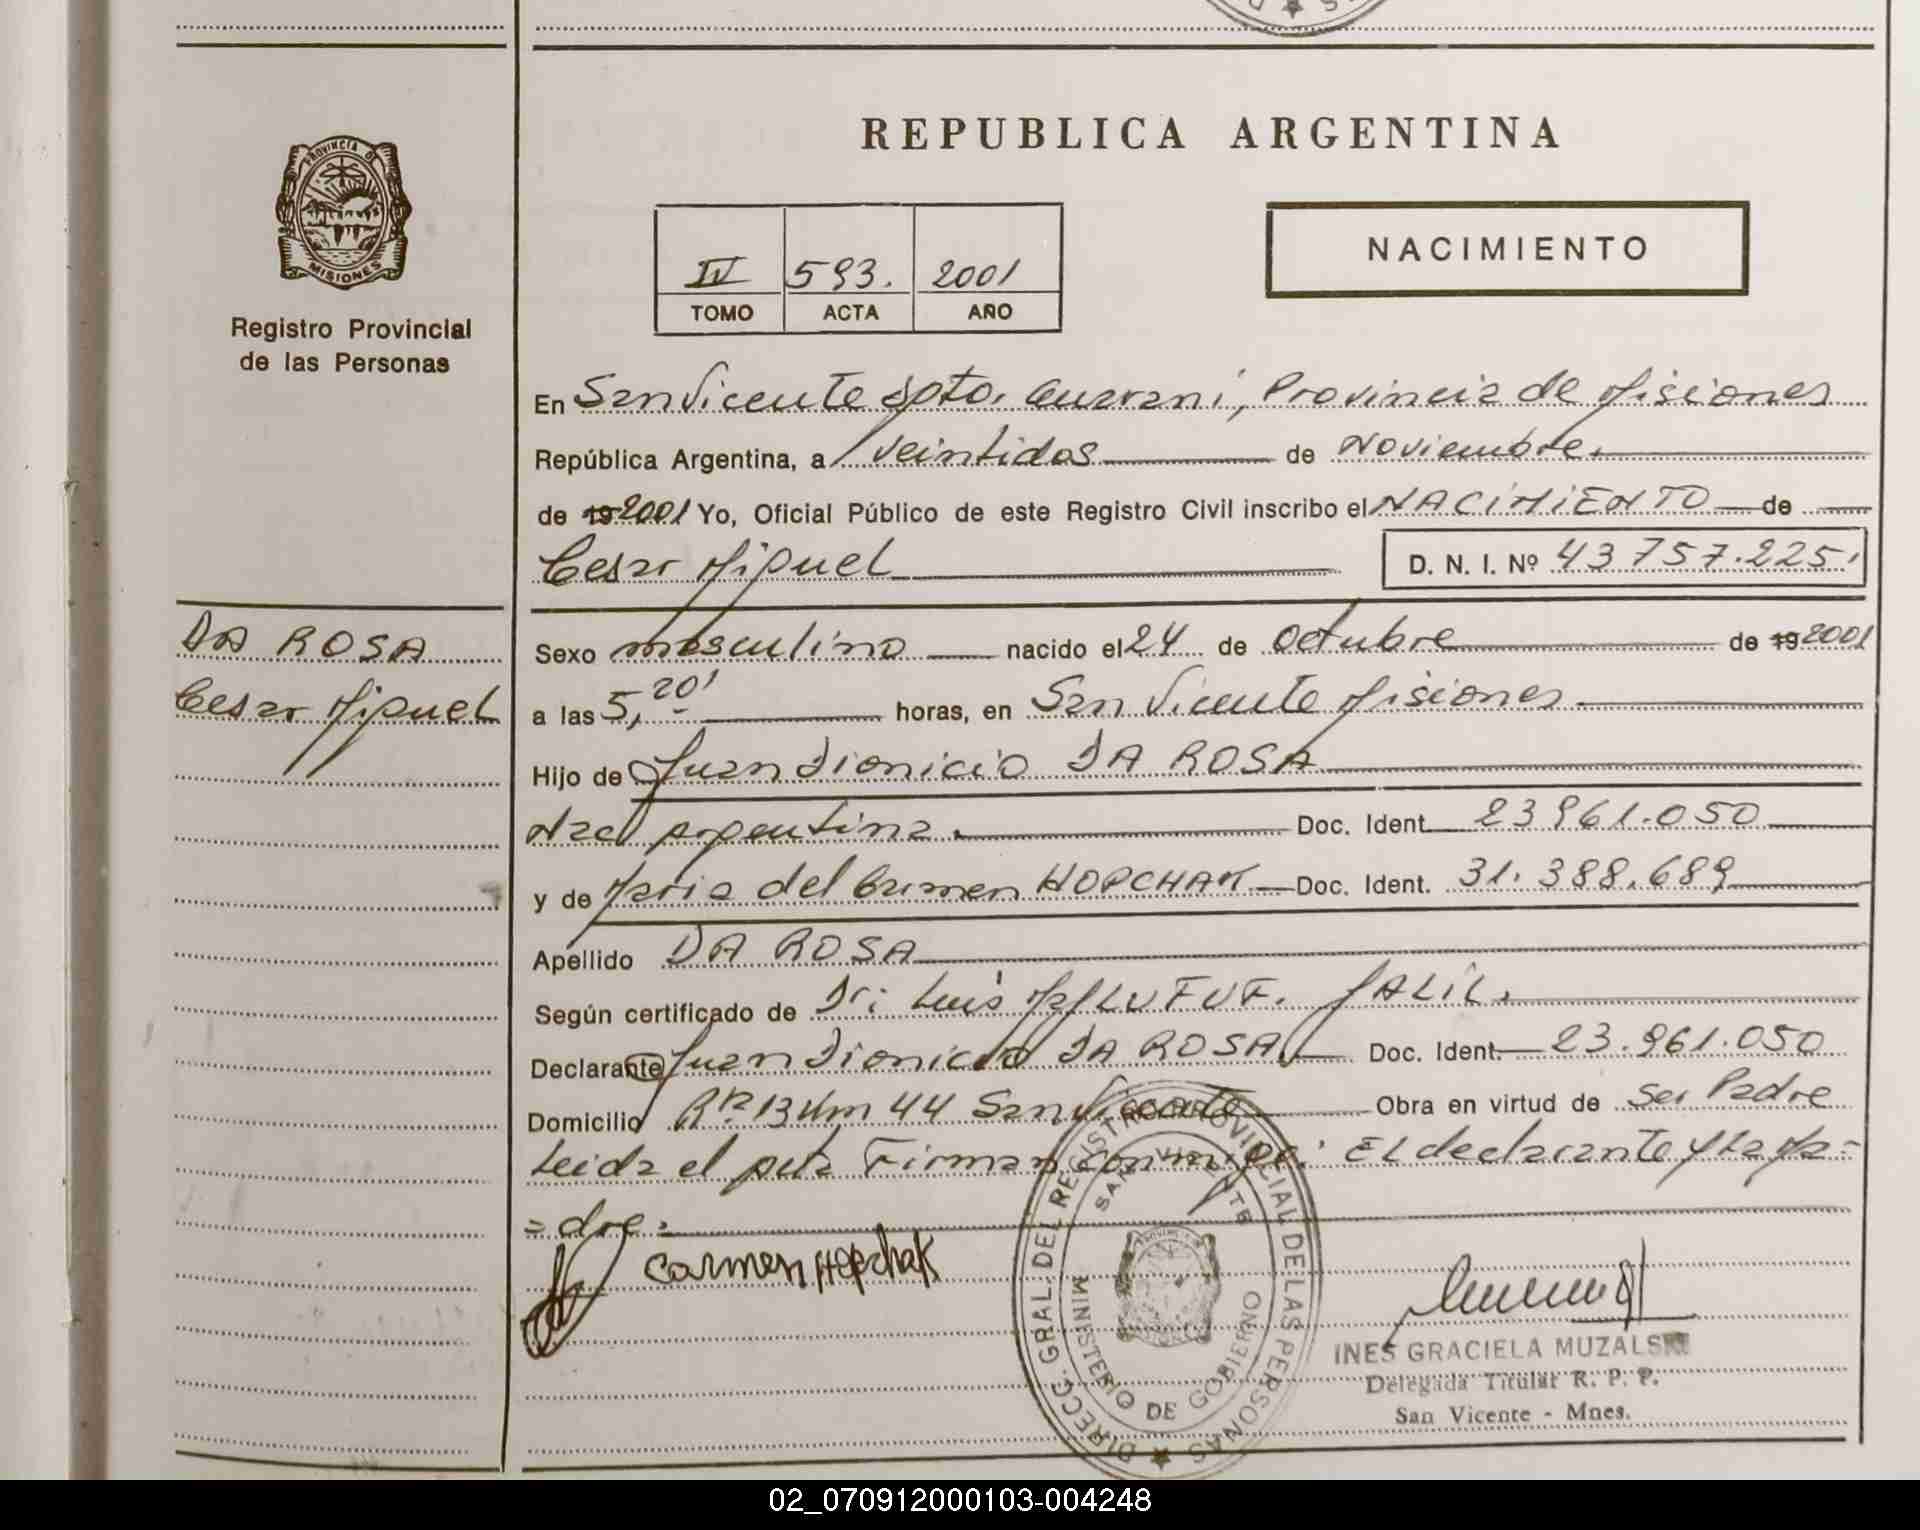 REPUBLICA ARGENTINA
PROVINCIA DE
MISIONES
Registro Provincial
de las Personas
IV 593. 2001
TOMO ACTA AÑO
NACIMIENTO
En San Vicente Dpto. Guarani, Provincia de Misiones
República Argentina, a veintidos de Noviembre.
de 19 2001 Yo, Oficial Público de este Registro Civil inscribo el NACIMIENTO de
Cesar Miguel D. N. I. Nº 43757.225.
DA ROSA
Cesar Miguel
Sexo masculino nacido el 24 de Octubre de 19 2001
a las 5,20' horas, en San Vicente Misiones
Hijo de Juan Dionicio DA ROSA
Nac Argentina. Doc. Ident. 23961.050
y de Maria del Carmen HOPCHAK Doc. Ident. 31.388.689
Apellido DA ROSA
Según certificado de Dr: Luis JALIL.
Declarante Juan Dionicio DA ROSA Doc. Ident. 23.961.050
Domicilio Rta 13 Km 44 San Vicente Obra en virtud de Ser Padre
Leida el acta Firman conmigo: El declarante y la Ma=
=dre.
Carmen Hopchak
DIRECC. GRAL. DEL REGISTRO PROVINCIAL DE LAS PERSONAS
SAN VICENTE
MINISTERIO DE GOBIERNO
INES GRACIELA MUZALSKI
Delegada Titular R. P. P.
San Vicente - Mnes.
02_070912000103-004248